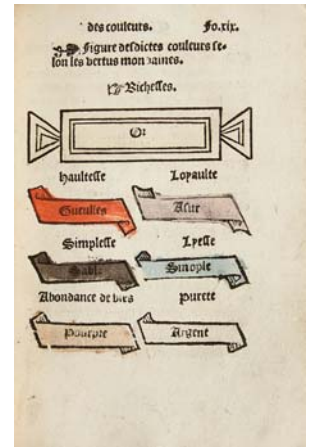 des couleurs. Fo.xix.
Figure desdictes couleurs se-
lon les vertus mondaines.
Richesses.
Or
Haultesse Loyaulte
Gueulles Asur
Simplesse Lyesse
Sable Sinople
Abondance de biēs purete
Pourpre Argent